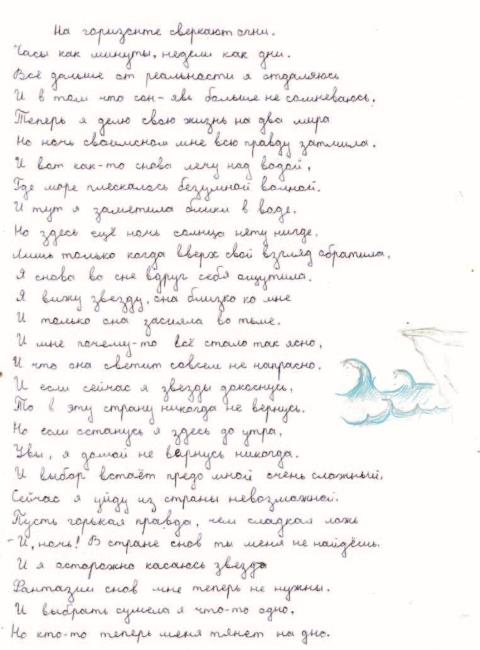 На горизонте сверкают огни.
Часы как минуты, недели как дни.
Всё дальше от реальности я отдаляюсь
И в том что сон-явь больше не сомневаюсь.
Теперь я делю свою жизнь на два мира
Но ночь своим сном мне всю правду затмила.
И вот как-то снова лечу над водой,
Где море плескалось безумной волной.
И тут я заметила блики в воде.
Но здесь ещё ночь солнца нету нигде.
Лишь только когда вверх свой взгляд обратила,
Я снова во сне вдруг себя ощутила.
Я вижу звезду, она близко ко мне
И только она засияла во тьме.
И мне почему-то всё стало так ясно,
И что она светит совсем не напрасно.
И если сейчас я звезды докоснусь,
То в эту страну никогда не вернусь.
Но если останусь я здесь до утра,
Увы, я домой не вернусь никогда.
И выбор встаёт предо мной очень сложный,
Сейчас я уйду из страны невозможной.
Пусть горькая правда, чем сладкая ложь
- И, ночь! В стране снов ты меня не найдёшь.
И я осторожно касаюсь звезды
Фантазии снов мне теперь не нужны.
И выбрать сумела я что-то одно,
Но кто-то теперь меня тянет на дно.